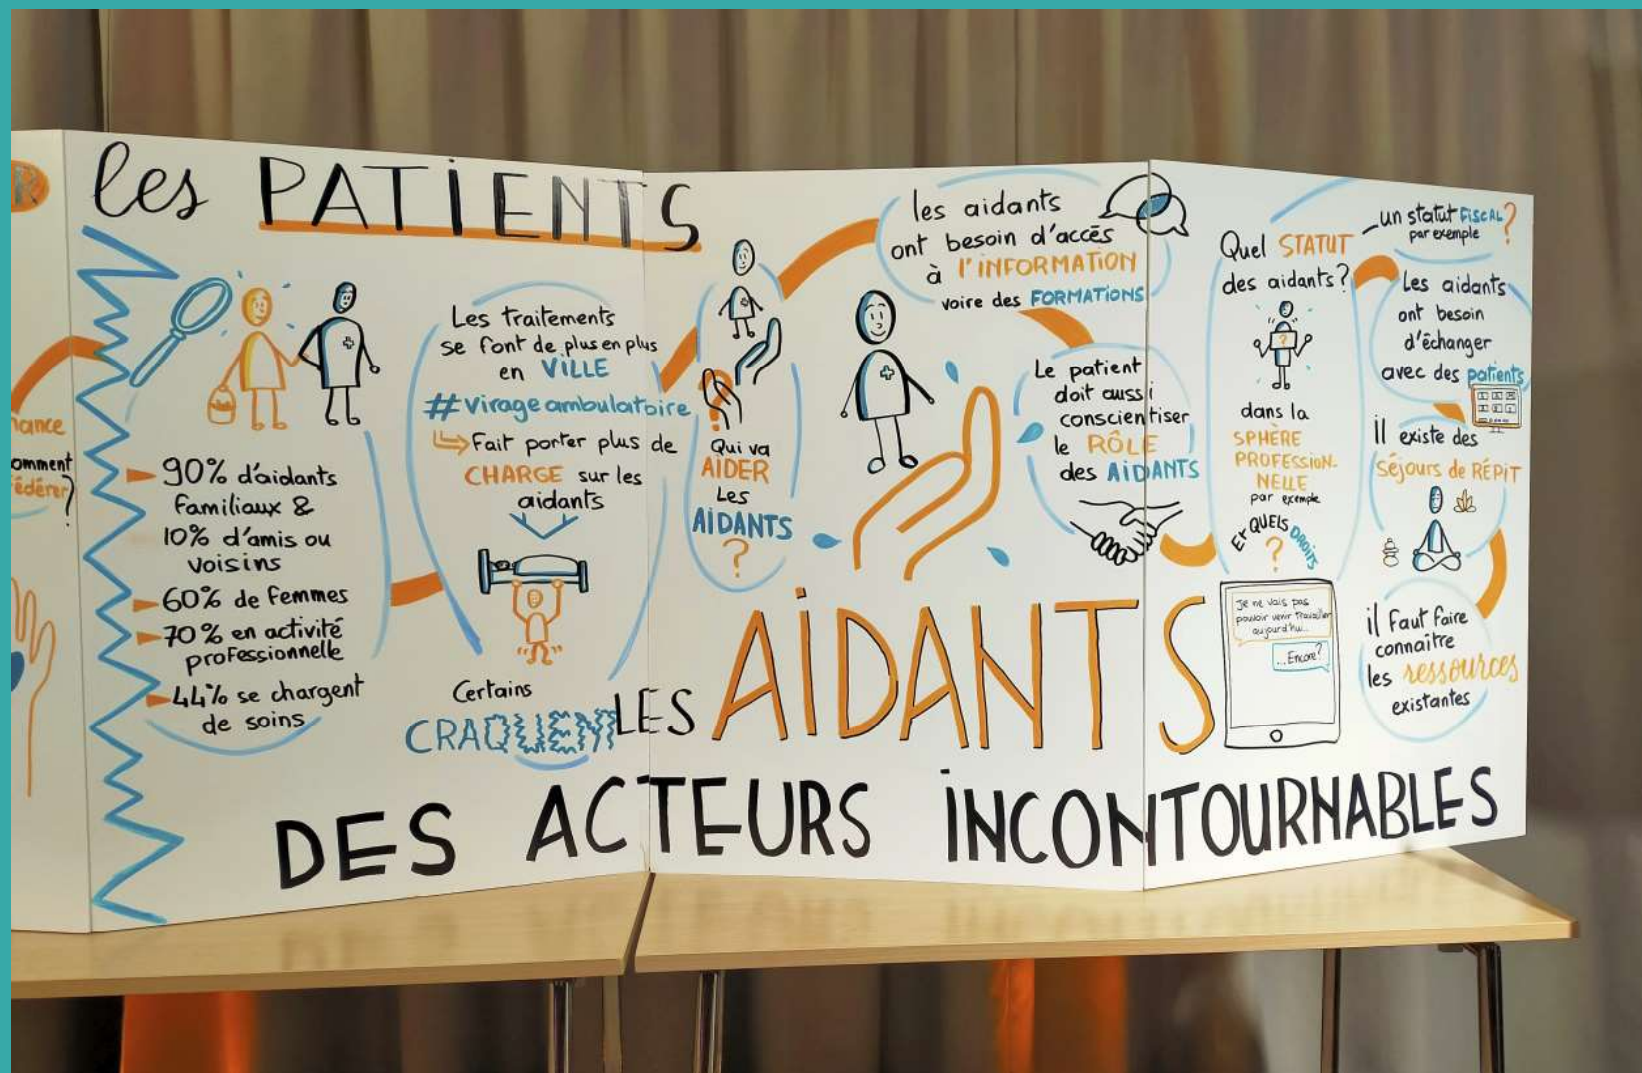 les PATIENTS
ance
omment
édérer
?
90% d'aidants
familiaux &
10% d'amis ou
voisins
60% de femmes
70% en activité
professionnelle
44% se chargent
de soins
Les traitements
se font de plus en plus
en VILLE
#virage ambulatoire
Fait porter plus de
CHARGE sur les
aidants
Certains
CRAQUENT
Qui va
AIDER
Les
AIDANTS
?
les aidants
ont besoin d'accés
à l'INFORMATION
voire des FORMATIONS
Le patient
doit aussi
conscientiser
le RÔLE
des AIDANTS
Quel STATUT
des aidants?
un statut FISCAL?
par exemple
?
dans la
SPHÈRE
PROFESSION-
NELLE
par exemple
Et QUELS DROITS
?
Je ne vais pas
pouvoir venir travailler
aujourd'hui...
...Encore?
Les aidants
ont besoin
d'échanger
avec des patients
Il existe des
Séjours de RÉPIT
il faut faire
connaître
les ressources
existantes
LES AIDANTS
DES ACTEURS INCONTOURNABLES